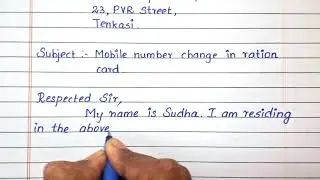 23, PVR Street,
Tenkasi.
Subject :- Mobile number change in ration
card.
Respected Sir,
My name is Sudha. I am residing
in the above